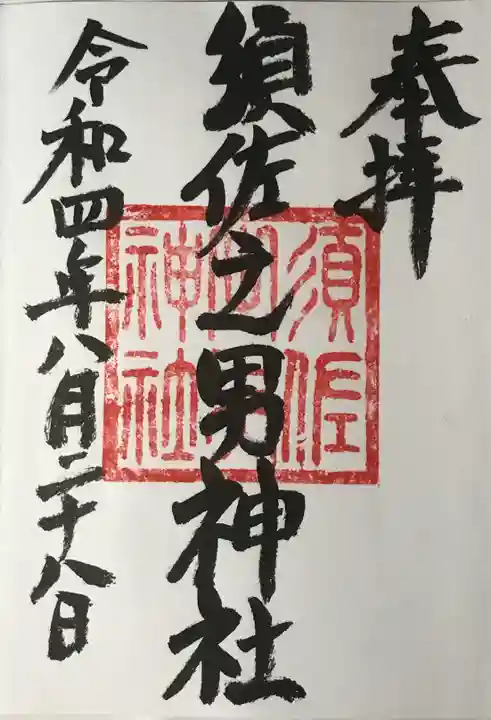 奉拝
須佐之男神社
令和四年八月二十八日
須佐
神社